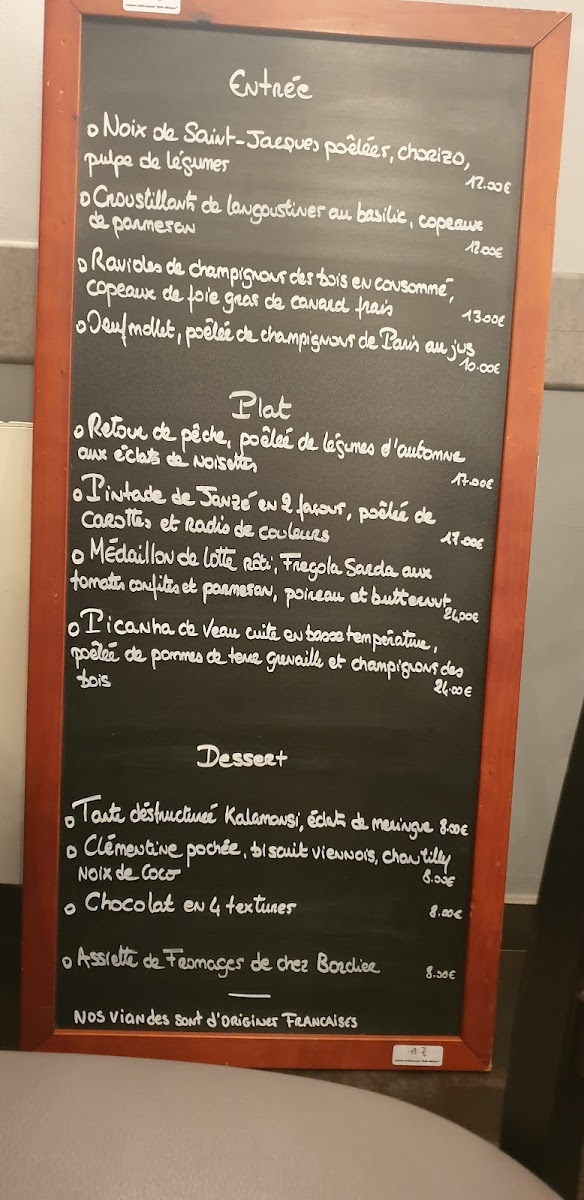 Entrée
o Noix de Saint-Jacques poêlées, chorizo,
pulpe de légumes
12.00€
o Croustillants de langoustines au basilic, copeaux
de parmesan
12.00€
o Ravioles de champignons des bois en consommé,
copeaux de foie gras de canard frais
13.00€
o Oeuf mollet, poêlée de champignons de Paris au jus
10.00€
Plat
o Retour de pêche, poêlée de légumes d'automne
aux éclats de noisettes
17.00€
o Pintade de Janzé en 2 façons, poêlée de
carottes et radis de couleurs
17.00€
o Médaillon de lotte rôti, Fregola Sarda aux
tomates confites et parmesan, poireau et butternut
24,00€
o Picanha de Veau cuite en basse température,
poêlée de pommes de terre grenaille et champignons des
bois
24.00€
Dessert
o Tarte déstructurée Kalamansi, éclats de meringue 8.00€
o Clémentine pochée, biscuit viennois, chantilly
Noix de Coco
8.00€
o Chocolat en 4 textures
8.00€
o Assiette de Fromages de chez Bordier
8.00€
NOS VIANDES SONT D'ORIGINES FRANCAISES